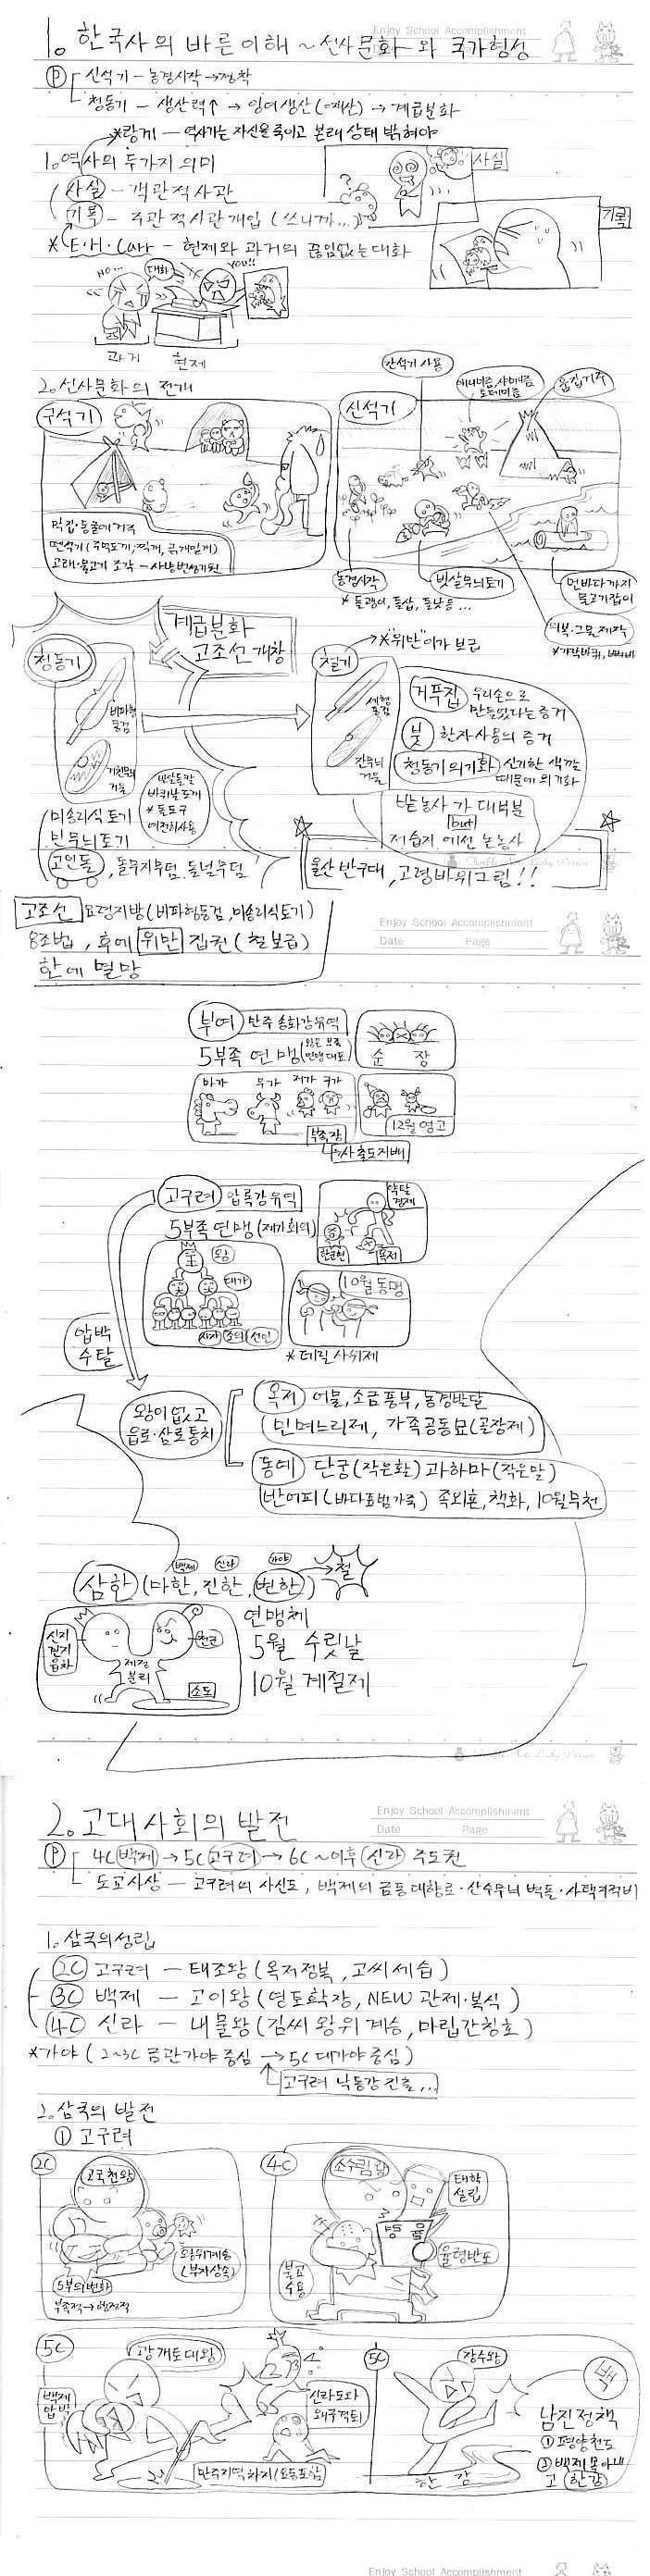 1. 한국사의 바른이해 ~ 선사문화와 국가형성
Enjoy School Accomplishment
Ⓟ 신석기 - 농경시작 → 정착
청동기 - 생산력↑ → 잉여생산(=재산) → 계급분화
*랑케 - 역사가는 자신을 죽이고 본래 상태 밝혀야
1. 역사의 두가지 의미
사실 - 객관적사관
기록 - 주관적사관개입 (쓰니까...)
사실
기록
* E·H·Carr - 현재와 과거의 끊임없는 대화
NO...
대화
YOU!!
과거 현재
2. 선사문화의 전개
구석기
막집·동굴에 거주
뗀석기(주먹도끼, 찍개, 긁개, 밀개)
고래·물고기 조각 - 사냥번성기원
신석기
간석기 사용
애니미즘, 샤머니즘
토테미즘
움집거주
농경시작
* 돌괭이, 돌삽, 돌낫 등...
빗살무늬토기
먼바다까지
물고기잡이
의복·그물 제작
*가락바퀴, 뼈바늘
계급분화
고조선 개창
청동기
비파형
동검
거친무늬
거울
미송리식 토기
민무늬토기
고인돌, 돌무지무덤, 돌널무덤
반달돌칼
바퀴날도끼
* 돌도구
여전히사용
철기
*"위만"이가 보급
세형
동검
잔무늬
거울
거푸집 우리손으로
만들었다는 증거
붓 한자사용의 증거
청동기 의기화 신기한 색깔
때문에 의기화
밭농사가 대부분
but
저습지에선 논농사
울산 반구대, 고령바위그림!!
고조선 요령지방(비파형동검, 미송리식토기)
8조법, 후에 위만 집권 (철보급)
한에 멸망
Enjoy School Accomplishment
Date Page
부여 만주송화강유역
5부족 연맹
순 장
마가 우가 저가 구가
부족장
사출도지배
12월 영고
고구려 압록강유역
5부족 연맹 (제가회의)
약탈
경제
한군현
옥저
왕
대가
사자 조의 선인
10월 동맹
*데릴사위제
압박
수탈
왕이없고
읍로·삼로통치
옥저 어물, 소금풍부, 농경발달
민며느리제, 가족공동묘(골장제)
동예 단궁(작은활) 과하마(작은말)
반어피(바다표범가죽) 족외혼, 책화, 10월무천
백제 신라 가야
삼한 (마한, 진한, 변한) → 철
신지
견지
읍차
제정
분리
천군
소도
연맹체
5월 수릿날
10월 계절제
2. 고대사회의 발전
Enjoy School Accomplishment
Date Page
Ⓟ 4C 백제 → 5C 고구려 → 6C ~ 이후 신라 주도권
도교사상 - 고구려의 사신도, 백제의 금동대향로·산수무늬 벽돌·사택지적비
1. 삼국의성립
2C 고구려 - 태조왕 (옥저정복, 고씨세습)
3C 백제 - 고이왕 (영토확장, NEW 관제·복식)
4C 신라 - 내물왕 (김씨 왕위 계승, 마립간칭호)
*가야 (2~3C 금관가야 중심 → 5C 대가야 중심)
고구려 낙동강 진출...
2. 삼국의 발전
① 고구려
2C
고국천왕
왕위계승
(부자상속)
5부의변화
부족적→행정적
4C
소수림왕
태학
설립
율령
율령반포
불교
수용
5C
광개토대왕
백제
압박
신라도와
왜구격퇴
만주지역차지(요동포함)
5C
장수왕
한 강
남진정책
①평양천도
②백제 몰아내
고 한강
Enjoy School Accomplishment